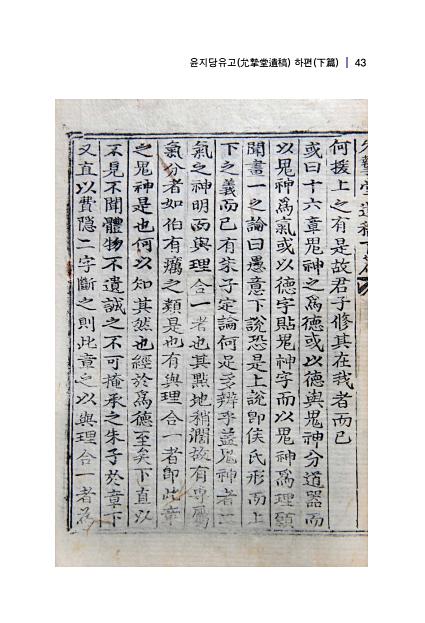 윤지당유고(允摯堂遺稿) 하편(下篇) | 43
允摯堂遺稿下篇
何援上之有是故君子修其在我者而已
或曰十六章鬼神之爲德或以德與鬼神分道器而
以鬼神爲氣或以德字貼鬼神字而以鬼神爲理願
聞畫一之論曰愚意下說恐是上說卽侯氏形而上
下之義而已有朱子定論何足多辨乎蓋鬼神者二
氣之神明而與理合一者也其界地稍濶故有專屬
氣分者如伯有厲之類是也有與理合一者卽此章
之鬼神是也何以知其然也經於爲德至矣下直以
不見不聞體物不遺誠之不可掩承之朱子於章下
又直以費隱二字斷之則此章之以與理合一者爲